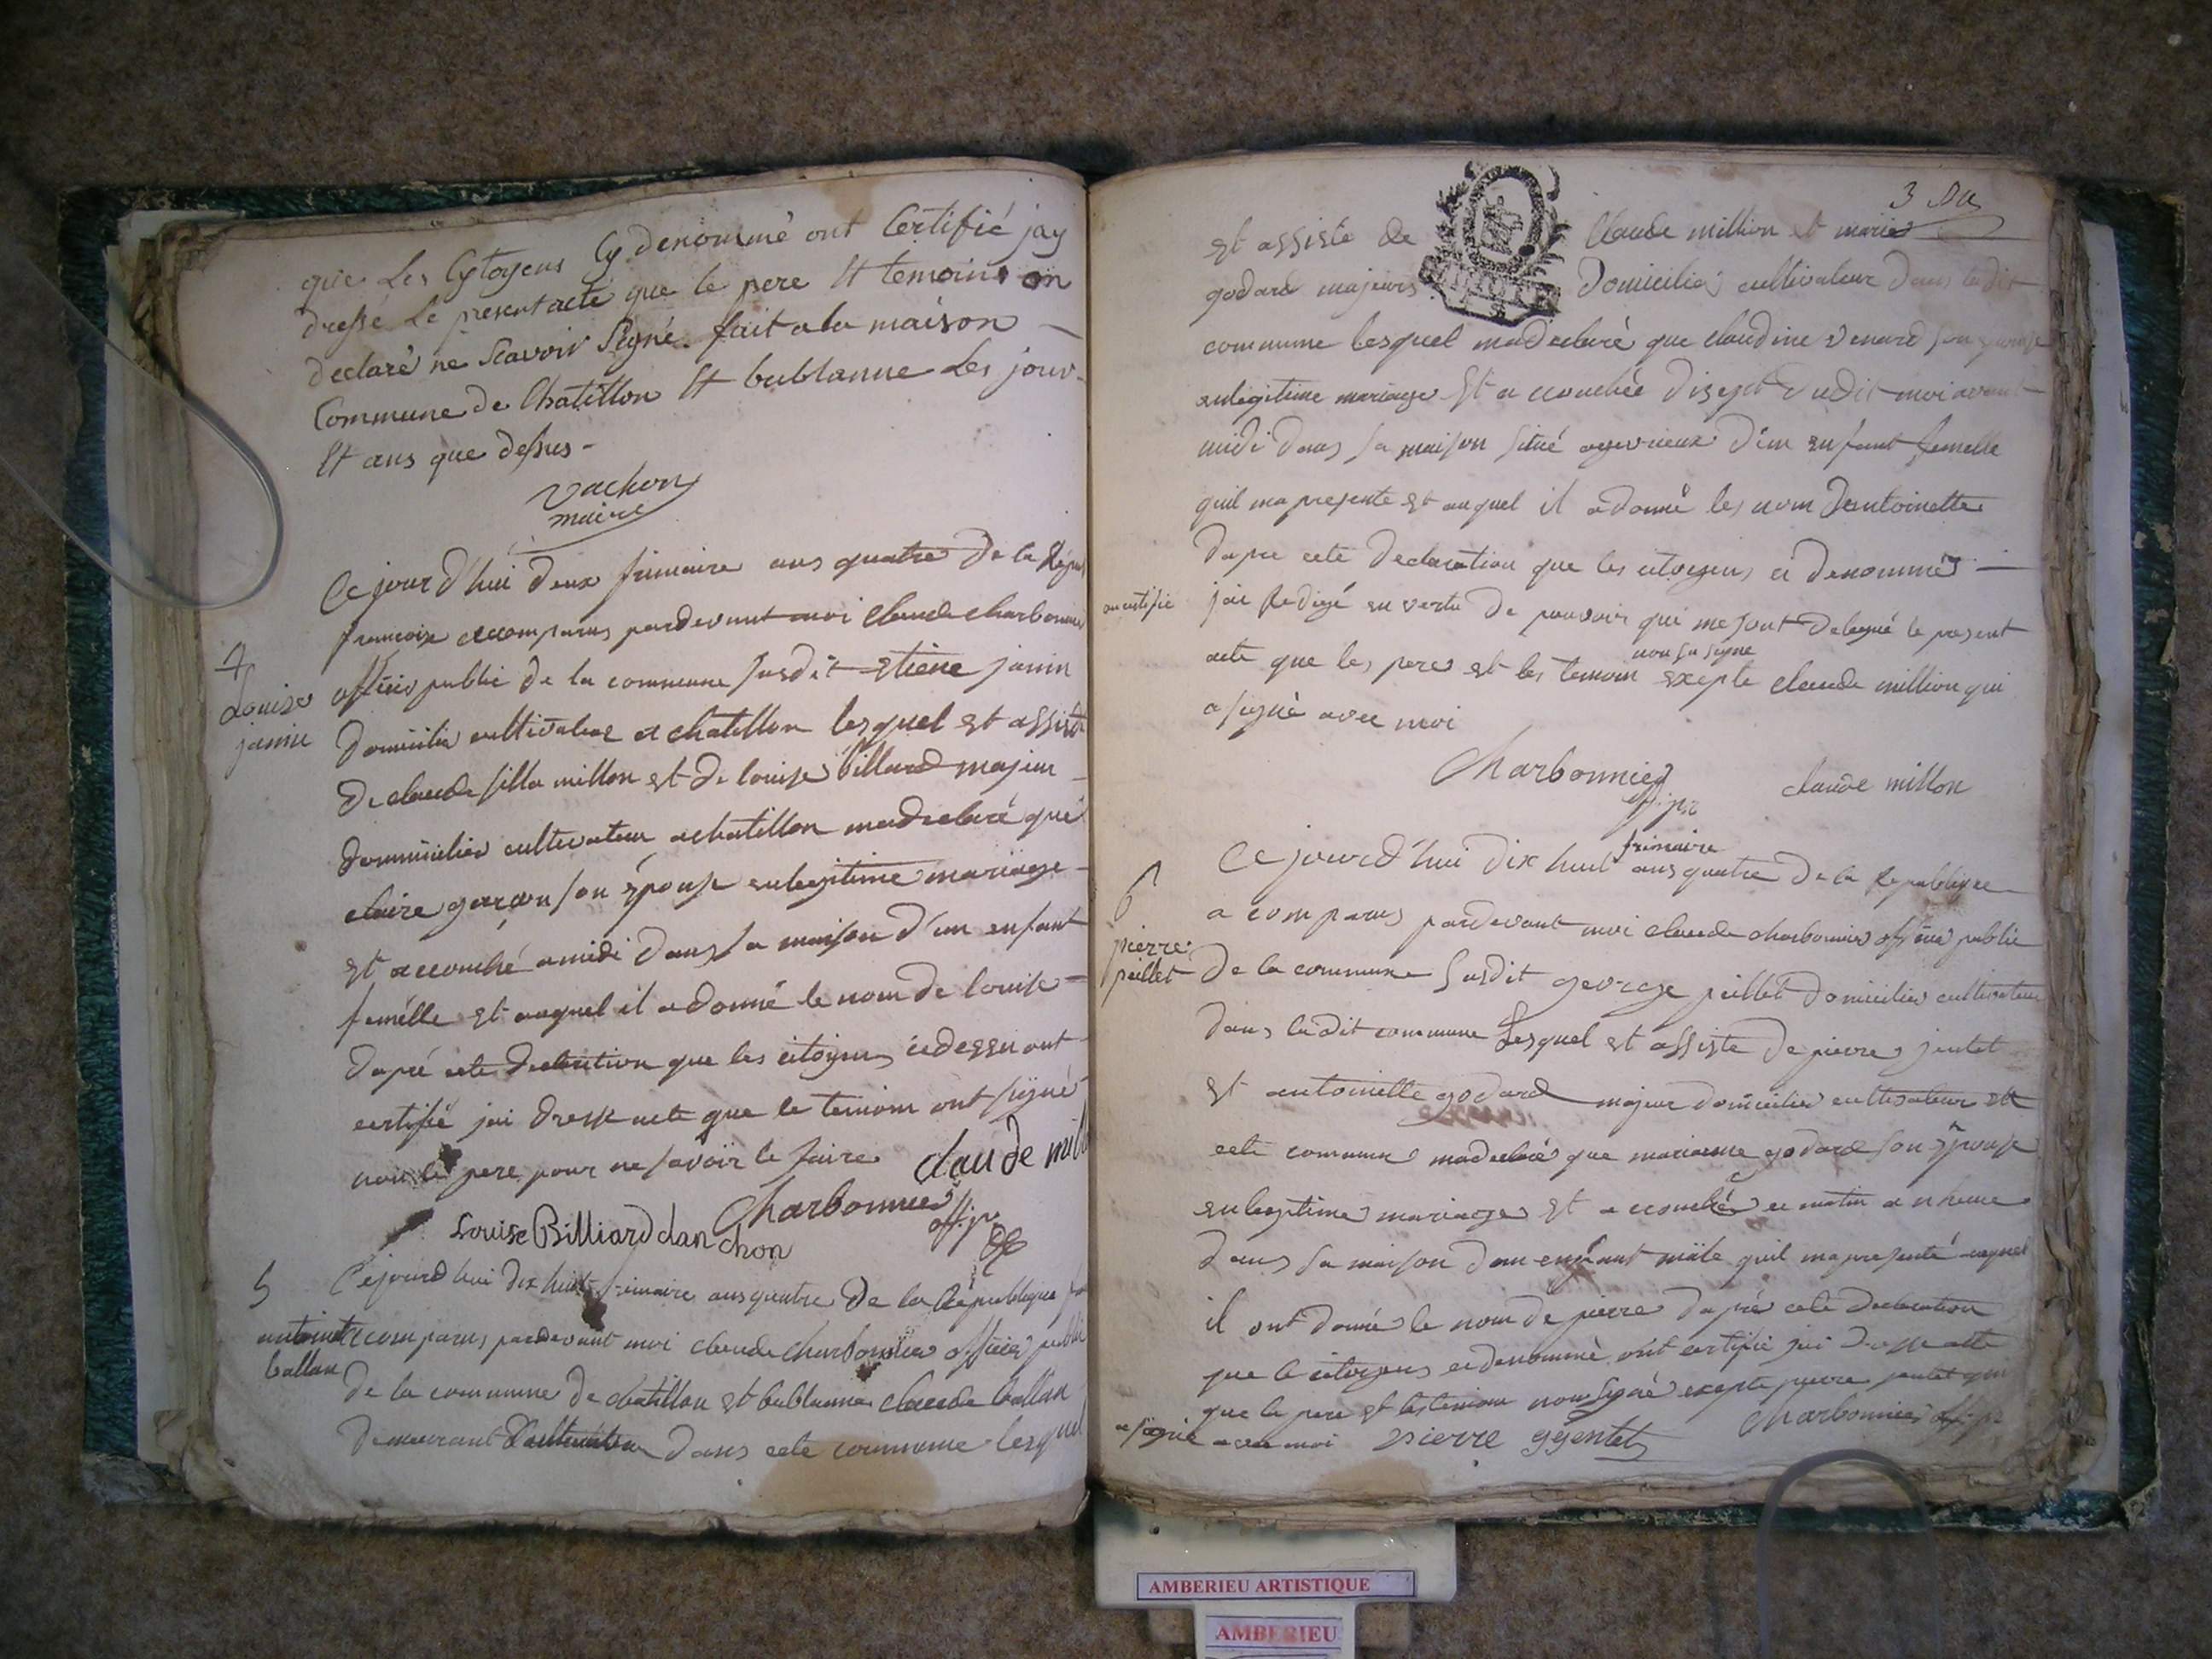 que Les Cytoyens Cy denommé ont Certifié jay
dressé Le present acte que le pere Et temoins on
declaré ne Scavoir Signé. fait a la maison
Commune de Chatillon Et bublanne Les jour
Et ans que dessus -
Vachon
maire
4
Louise
janin
Ce jour d'hui deux frimaire ans quatre de la Répu
francoise accomparus pardevant moi Claude Charbonnier
officier public de la commune susdit Etiene janin
domicilié cultivateur a chatillon lesquel est assisté
de claude fillo millon et de louise billard majeur
dommicilier cultivateur a chatillon madeclaré que
claire garcon son épouse enlegitime mariage
et accouché amidi dans sa maison d'un enfant
femélle et auquel il adonné le nom de louise
dapré cete declaration que les citoyens cidessu ont
certifié jai dressé acte que le temoin ont signé
non le pere pour ne savoir le faire
claude mill
Charbonnier
off. p.
Louise Billiard dan chon
5
antoinette
ballan
Cejourd hui dix huit frimaire ans quatre de la République
acomparus pardevant moi claude charbonnier officier public
de la commune de chatillon et bublanne claude ballan
demeurant cultivateur dans cete commune lesquel
3
est assisté de Claude million et marie
godard majeurs Domicilié cultivateur dans ladit
commune lesquel madeclaré que claudine venard son epouse
enlegitime mariage Et a ccouchée disept dudit moi avant
midi dans sa maison situé agevrieux d'un enfant femelle
quil ma presente et auquel il adonné les nom dantoinette
dapre cete declaration que les citoyens ci denommés
on certifié jai Redigé en vertu de pouvoir qui me sont delegué le present
acte que les pere et les temoin non su signe exepte claude million qui
a signé avec moi
Charbonnier
off. p.
claude millon
6
pierre
peillet
Ce jourd'hui dix huit frimaire ans quatre de la Republique
a comparus pardevant moi claude charbonnier officier public
de la commune susdit george peillet domicilier cultivateur
dans ladit commune Lesquel est assiste de pierre jentet
et antoinette godard majeur domicilier cultivateur
cete commune madeclaré que marianne godard son épouse
enlegitime mariage et accouchée ce matin a n heure
dans sa maison dun enfant mâle quil ma presenté auquel
il ont donné le nom de pierre dapré cete declaration
que le citoyens cidenommé ont certifié jai dressé acte
que le pere et les temoin non signé exepte pierre jentet qui
a signé avec moi pierre gyentet Charbonnier off. p.
AMBERIEU ARTISTIQUE
AMBERIEU